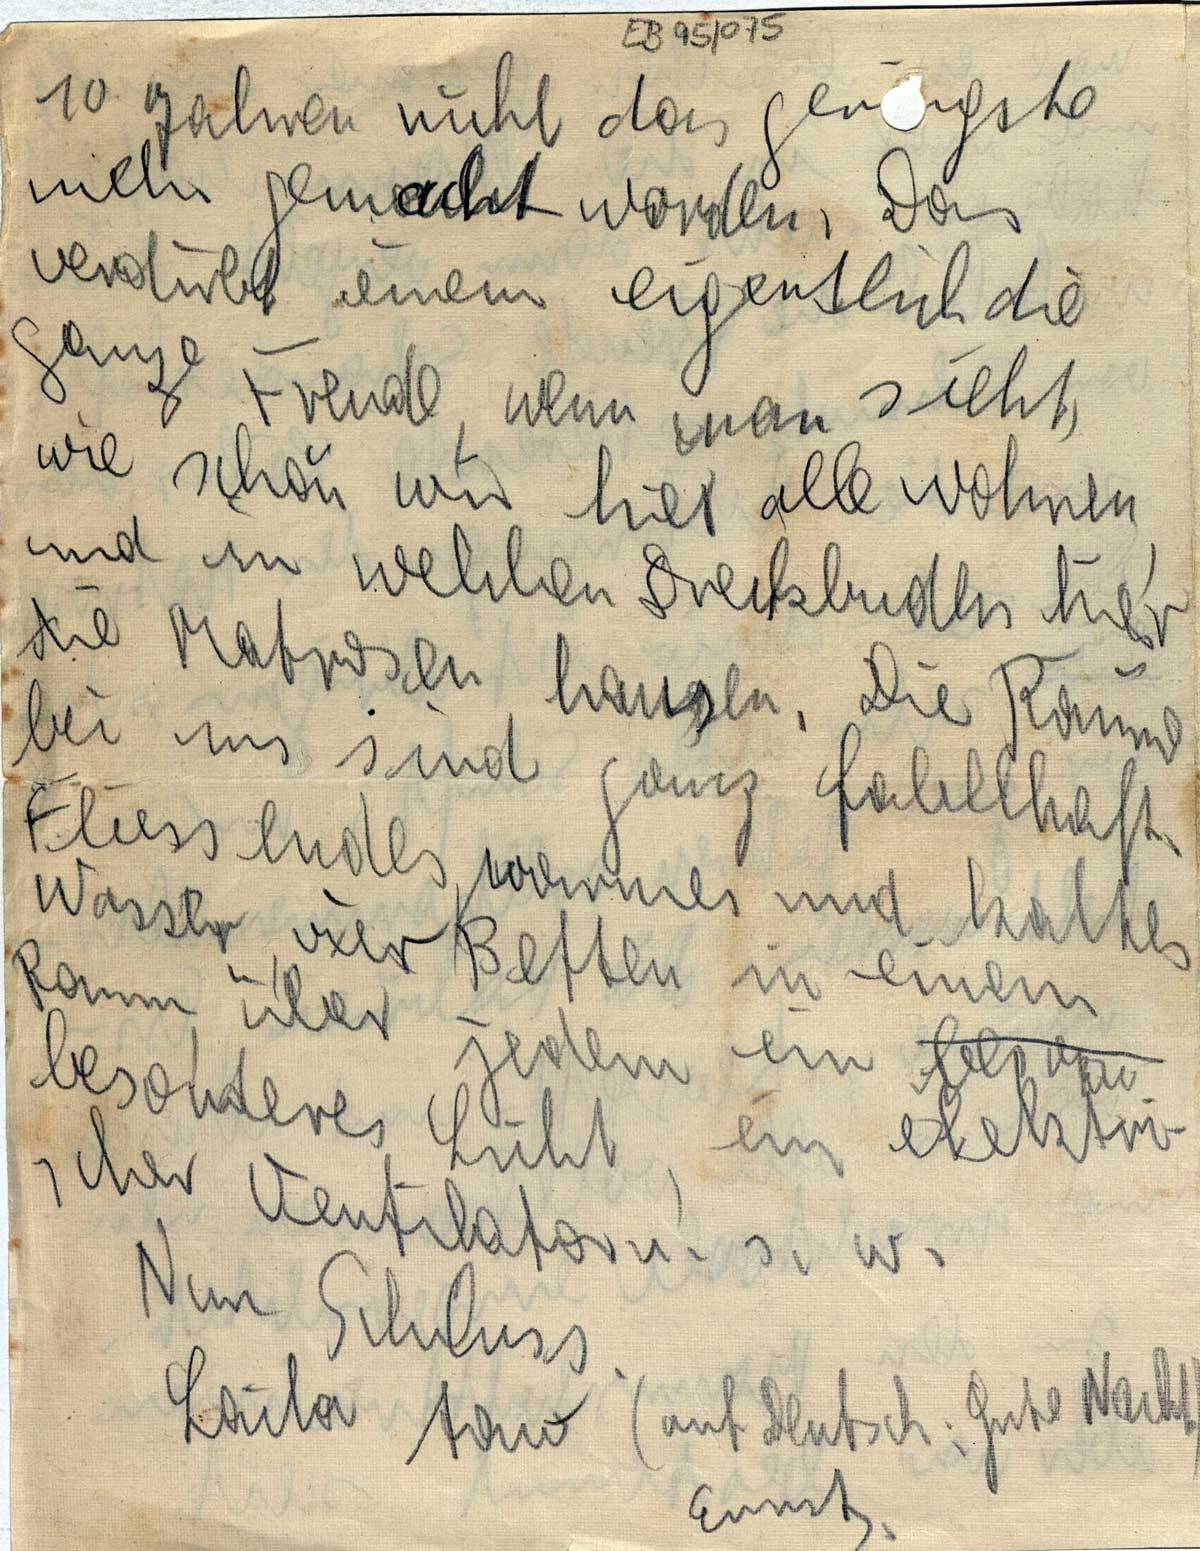 EB 95/075
10 Jahren nicht das geringste
mehr gemacht worden. Das
verdirbt einem eigentlich die
ganze Freude, wenn man sieht,
wie schön wir hier alle wohnen
und in welchen Dreckbuden hier
die Matrosen hausen. Die Räume
bei uns sind ganz fabelhaft.
Fliessendes, warmes und kaltes
Wasser, vier Betten in einem
Raum über jedem ein
besonderes Licht, ein elektri-
scher Ventilator u. s. w.
Nun Schluss.
Laila taw (auf Deutsch: Gute Nacht)
Ernst.